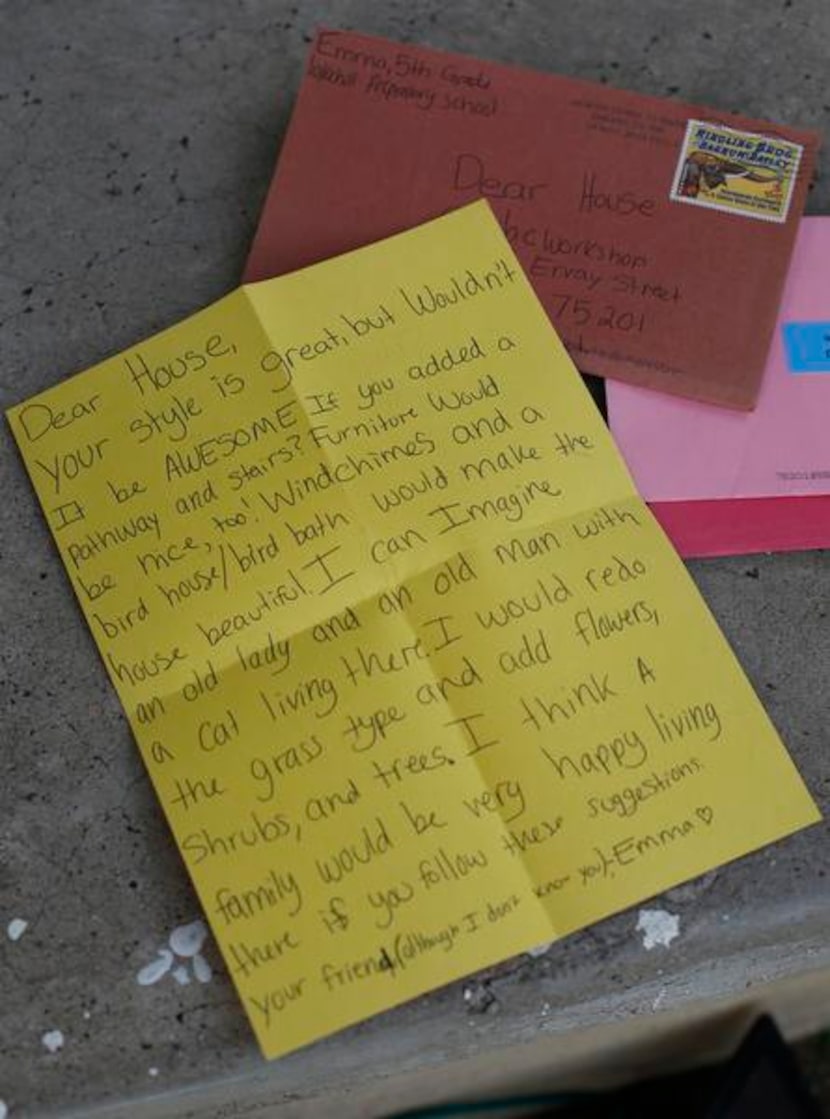 Emma, 5th Grade
Lakehill Preparatory School
RINGLING BROS
BARNUM & BAILEY
Dear House
bcWorkshop
Ervay Street
75201
Dear House,
Your style is great, but Wouldn't
It be AWESOME If you added a
Pathway and stairs? Furniture Would
be nice, too! Windchimes and a
bird house/bird bath would make the
house beautiful. I can Imagine
an old lady and an old man with
a cat living there. I would redo
the grass type and add flowers,
Shrubs, and trees. I think A
family would be very happy living
there if you follow these suggestions.
Your friend, (although I don't know you), -Emma ♡